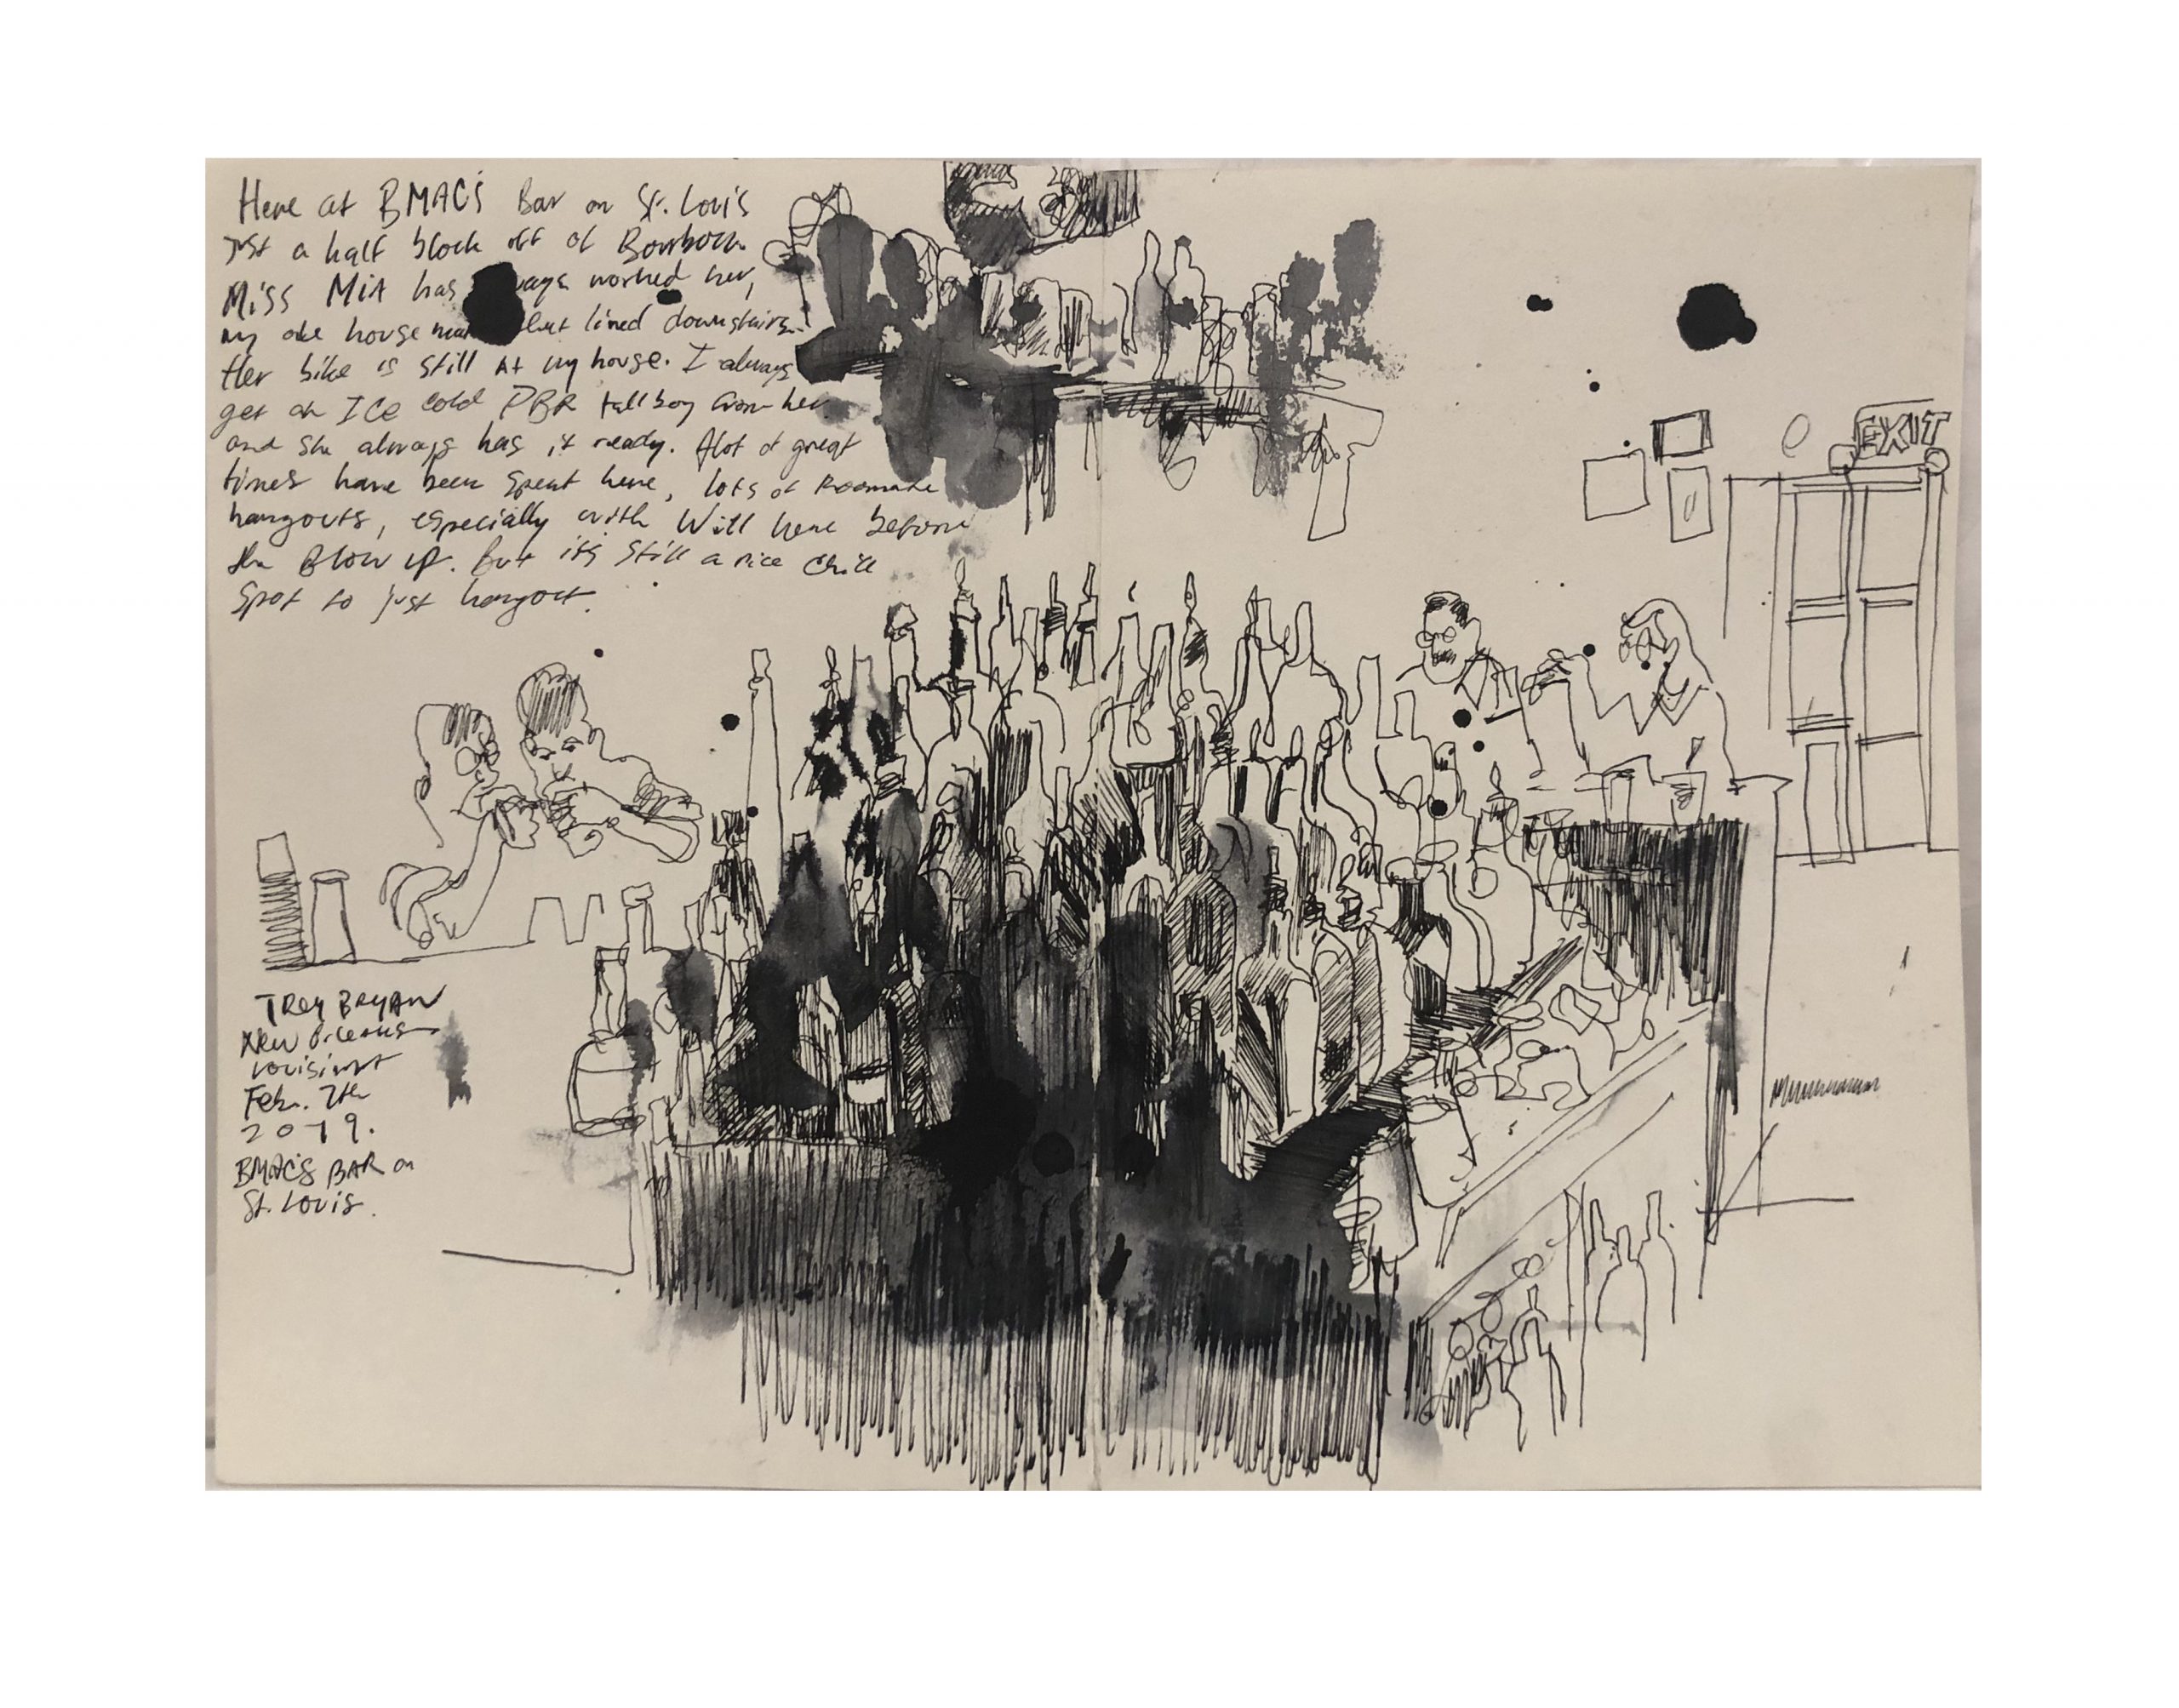 Here at BMAC's Bar on St. Louis
Just a half block off of Bourbon
Miss Mia has always worked her,
my old house mate that lived downstairs.
Her bike is still At my house. I always
get an ICe cold PBR tall boy from her
and she always has it ready. Alot of great
times have been spent here, lots of Roomate
hangouts, especially with Will here before
the Blow up. But it's still a nice chill
Spot to just hangout.
EXIT
TREY BRYAN
New Orleans
Louisiana
Feb. 7th
2019.
BMAC'S BAR on
St. Louis.